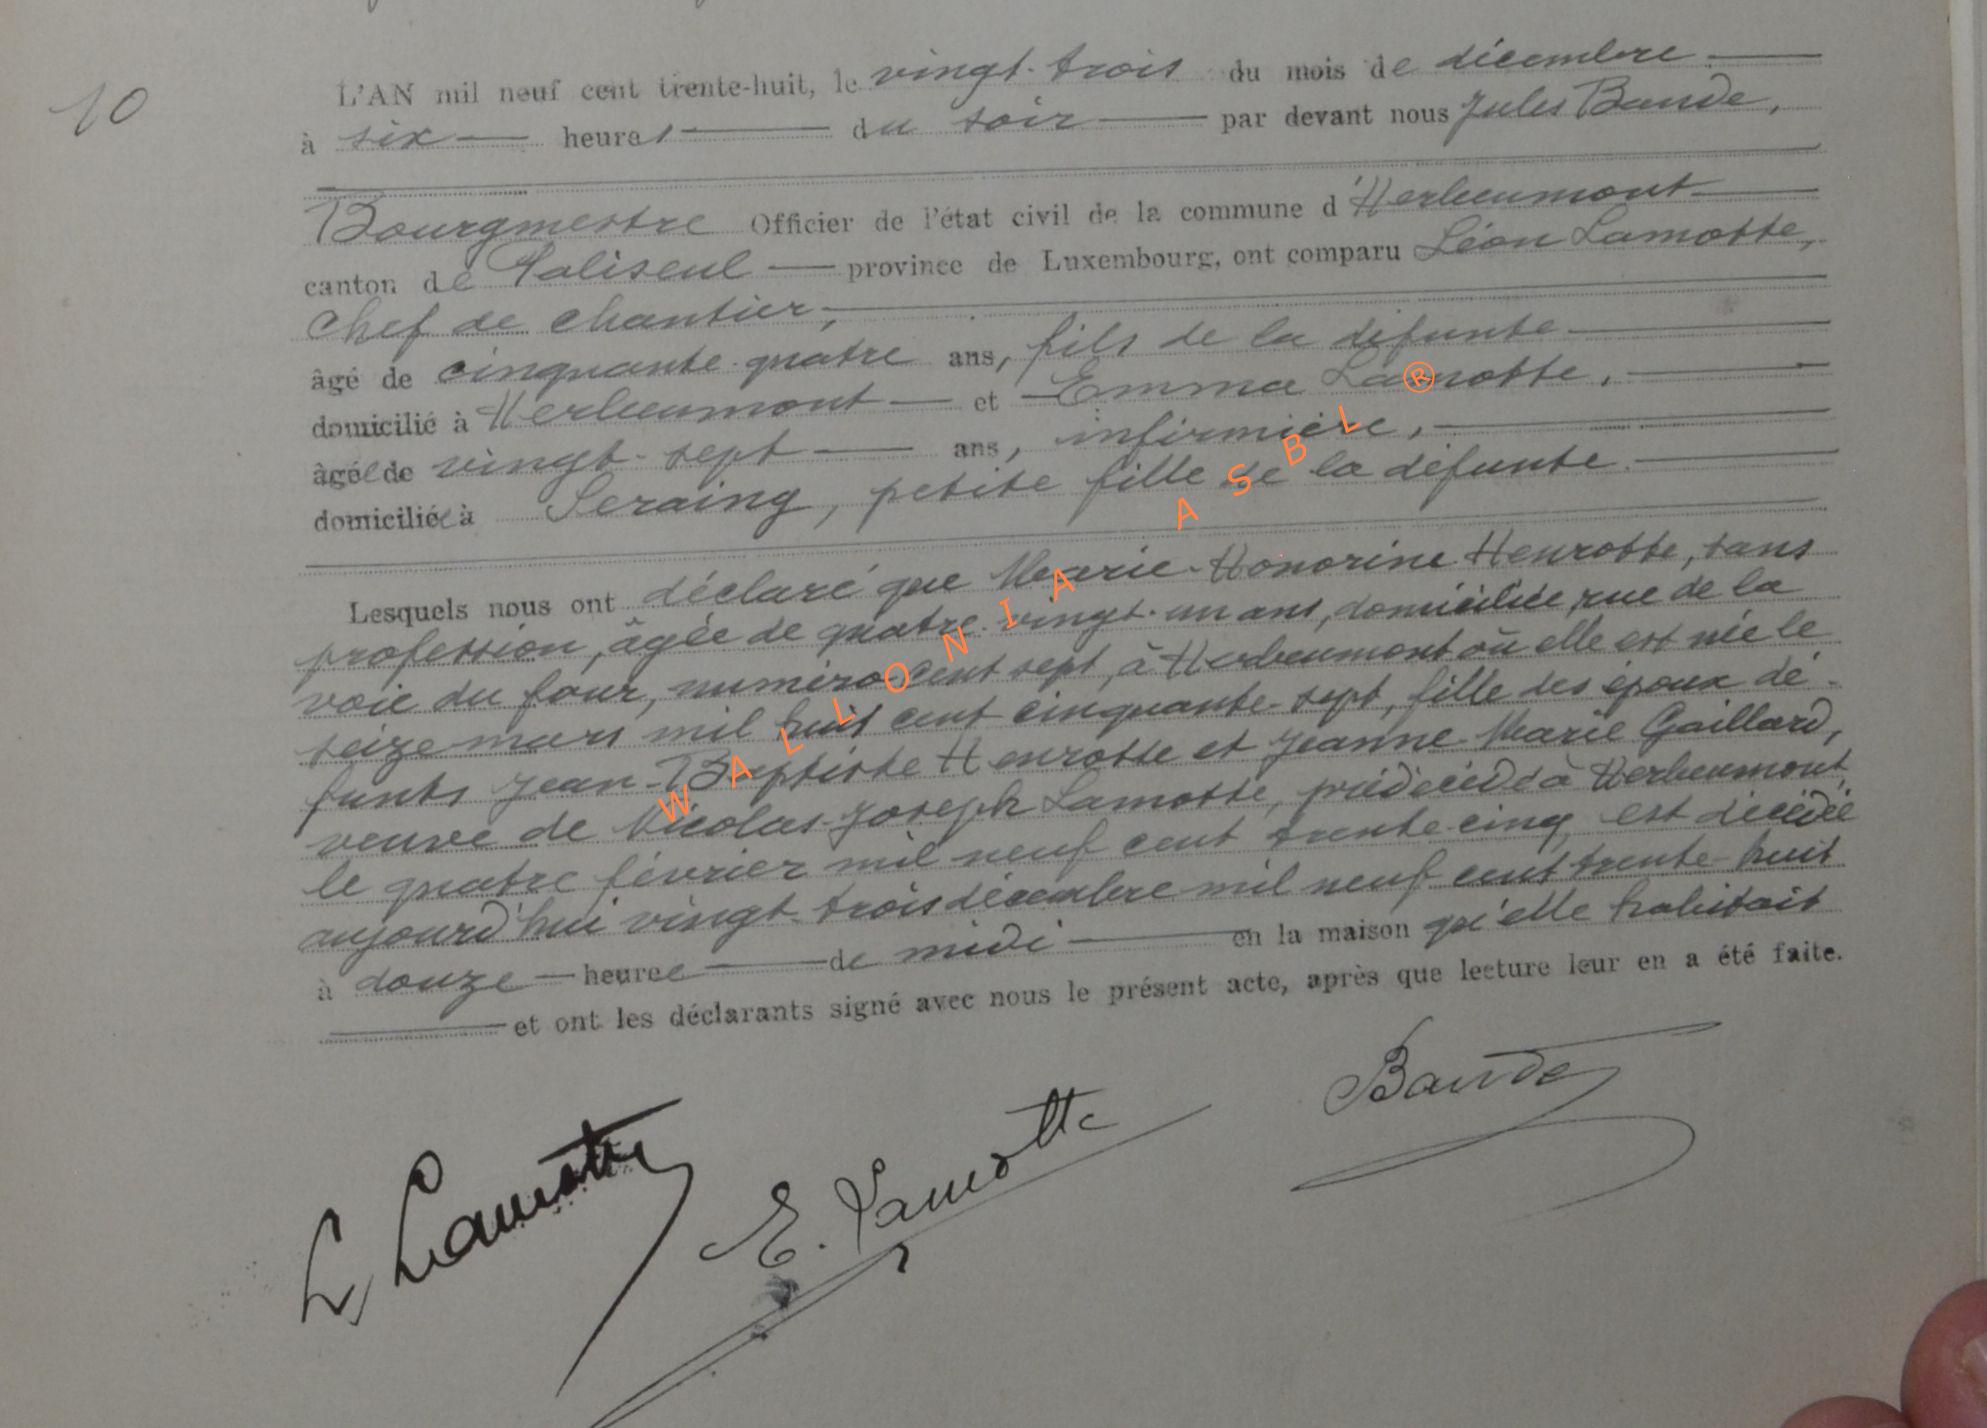 10
L'AN mil neuf cent trente-huit, le vingt-trois du mois de décembre
à six heures du soir par devant nous Jules Baude,
Bourgmestre Officier de l'état civil de la commune d'Herbeumont
canton de Paliseul province de Luxembourg, ont comparu Léon Lamotte,
Chef de chantier,
âgé de cinquante-quatre ans, fils de la défunte
domicilié à Herbeumont et Emma Lamotte,
âgée de vingt-sept ans, infirmière,
domiciliée à Seraing, petite fille de la défunte.
Lesquels nous ont déclaré que Marie-Honorine Henrotte, sans
profession, âgée de quatre-vingt-un ans, domiciliée rue de la
voie du four, numéro cent sept, à Herbeumont où elle est née le
seize mars mil huit cent cinquante-sept, fille des époux dé-
funts Jean-Baptiste Henrotte et Jeanne-Marie Gaillard,
veuve de Nicolas-Joseph Lamotte, prédécédé à Herbeumont
le quatre février mil neuf cent trente-cinq, est décédée
aujourd'hui vingt-trois décembre mil neuf cent trente-huit
à douze heure de midi en la maison qu'elle habitait
et ont les déclarants signé avec nous le présent acte, après que lecture leur en a été faite.
L Lamotte
E. Lamotte
Baude
WALLONIA ASBL ®